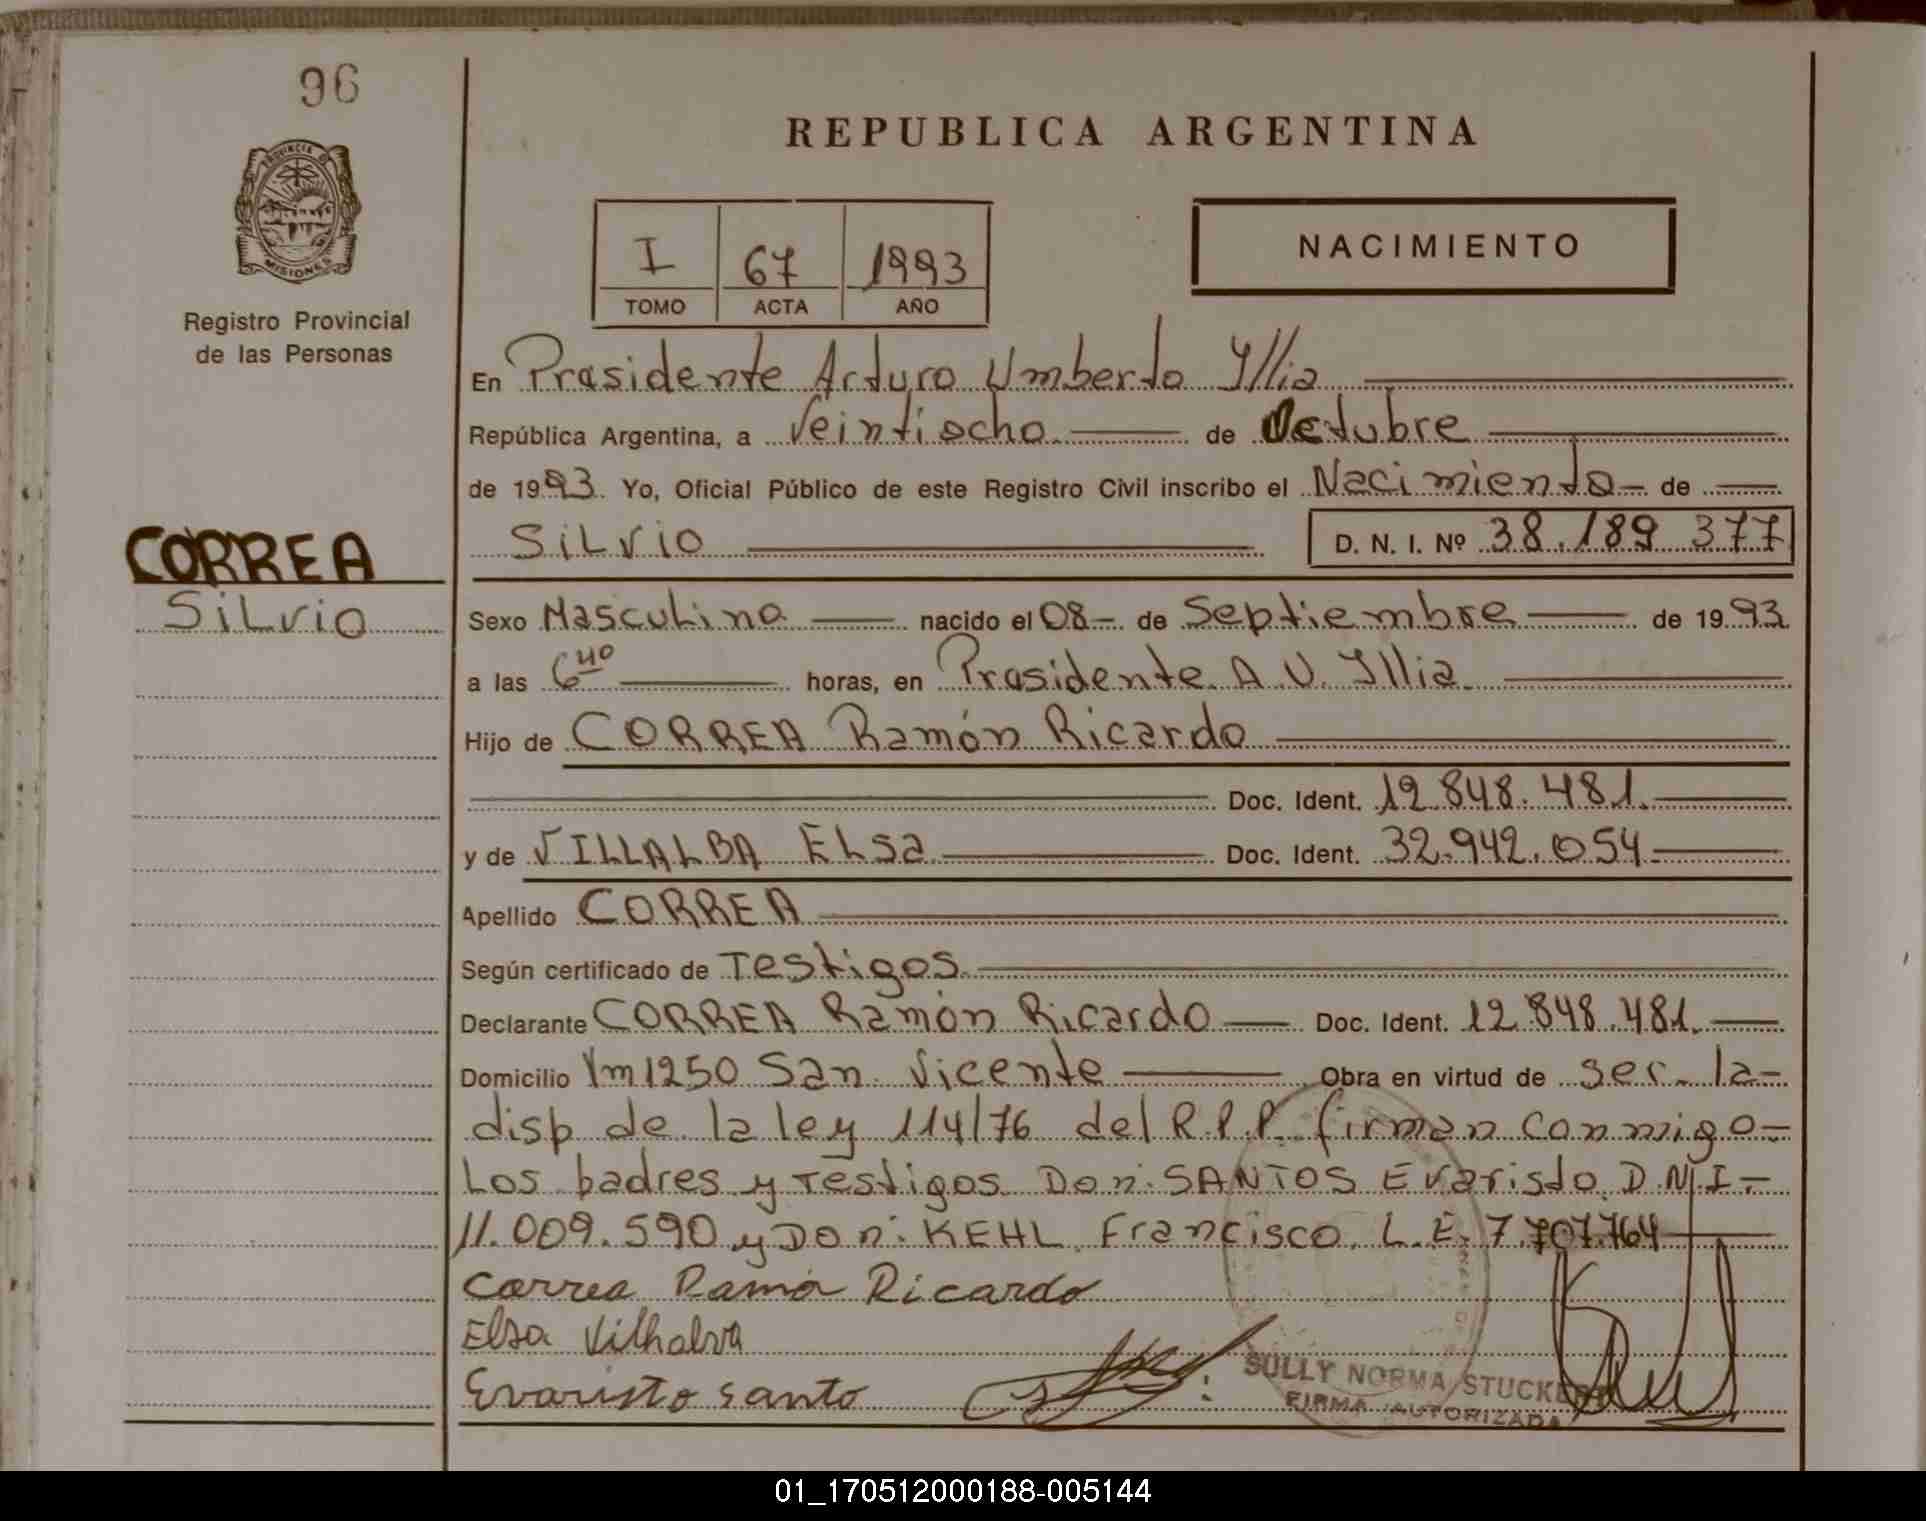 96
REPUBLICA ARGENTINA
PROVINCIA D
MISIONES
Registro Provincial
de las Personas
I 67 1993
TOMO ACTA AÑO
NACIMIENTO
En Presidente Arturo Umberto Illia
República Argentina, a Veintiocho de Octubre
de 1993. Yo, Oficial Público de este Registro Civil inscribo el Nacimiento de
Silvio D. N. I. Nº 38.189 377
CORREA
Silvio
Sexo Masculino nacido el 08 de Septiembre de 1993
a las 6 40 horas, en Presidente A. U. Illia
Hijo de CORREA Ramón Ricardo
Doc. Ident. 12.848.481.
y de VILLALBA Elsa Doc. Ident. 32.942.054
Apellido CORREA
Según certificado de Testigos
Declarante CORREA Ramón Ricardo Doc. Ident. 12.848.481.
Domicilio Km 1250 San Vicente Obra en virtud de ser la
disp de la ley 114/76 del R.P.P. firman conmigo
Los padres y Testigos Don: SANTOS Evaristo D.N.I-
11.009.590 y Don: KEHL Francisco L.E. 7.707.764
Correa Ramón Ricardo
Elsa Vilhalva
Evaristo Santo
SULLY NORMA STUCKERT
FIRMA AUTORIZADA
01_170512000188-005144